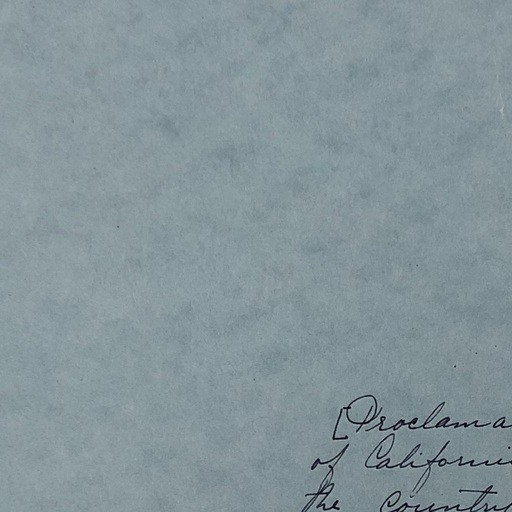 [Proclama
of Californi
the country